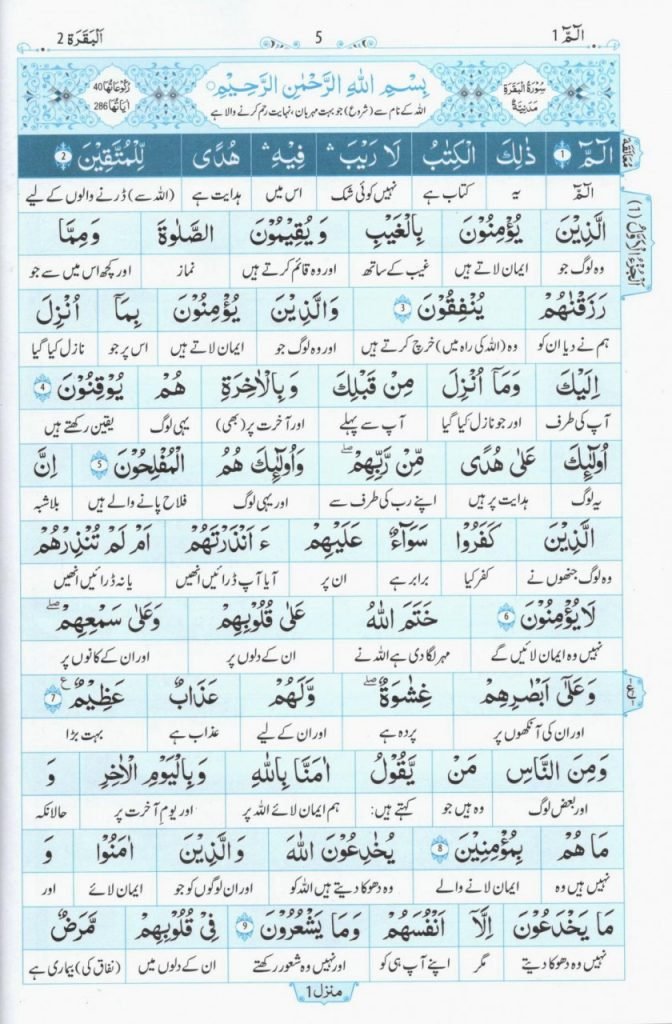 الٓمّٓ 1
5
اَلْبَقَرَة 2
سُوْرَةُ الْبَقَرَةِ مَدَنِيَّةٌ
بِسْمِ اللّٰهِ الرَّحْمٰنِ الرَّحِيْمِ
رُكُوْعَاتُهَا 40
اللہ کے نام سے (شروع) جو بہت مہربان، نہایت رحم کرنے والا ہے
اٰيَاتُهَا 286
مُعَانَقَة
الٓمّٓ 1 ذٰلِكَ الْكِتٰبُ لَا رَيْبَ ۛ فِيْهِ ۛ هُدًى لِّلْمُتَّقِيْنَ 2
الٓمّٓ یہ کتاب ہے نہیں کوئی شک اس میں ہدایت ہے (اللہ سے) ڈرنے والوں کے لیے
اَلْجُزْءُ الْاَوَّلُ (1)
الَّذِيْنَ يُؤْمِنُوْنَ بِالْغَيْبِ وَ يُقِيْمُوْنَ الصَّلٰوةَ وَمِمَّا
وہ لوگ جو ایمان لاتے ہیں غیب کے ساتھ اور وہ قائم کرتے ہیں نماز اور کچھ اس میں سے جو
رَزَقْنٰهُمْ يُنْفِقُوْنَ 3 وَالَّذِيْنَ يُؤْمِنُوْنَ بِمَآ اُنْزِلَ
ہم نے دیا ان کو وہ (اللہ کی راہ میں) خرچ کرتے ہیں اور وہ لوگ جو ایمان لاتے ہیں اس پر جو نازل کیا گیا
اِلَيْكَ وَمَآ اُنْزِلَ مِنْ قَبْلِكَ وَبِالْاٰخِرَةِ هُمْ يُوْقِنُوْنَ 4
آپ کی طرف اور جو نازل کیا گیا آپ سے پہلے اور آخرت پر (بھی) یہی لوگ یقین رکھتے ہیں
اُولٰٓئِكَ عَلٰى هُدًى مِّنْ رَّبِّهِمْ ۖ وَاُولٰٓئِكَ هُمُ الْمُفْلِحُوْنَ 5 اِنَّ
یہ لوگ ہدایت پر ہیں اپنے رب کی طرف سے اور یہی لوگ فلاح پانے والے ہیں بلاشبہ
الَّذِيْنَ كَفَرُوْا سَوَآءٌ عَلَيْهِمْ ءَ اَنْذَرْتَهُمْ اَمْ لَمْ تُنْذِرْهُمْ
وہ لوگ جنھوں نے کفر کیا برابر ہے ان پر آیا آپ ڈرائیں انھیں یا نہ ڈرائیں انھیں
لَا يُؤْمِنُوْنَ 6 خَتَمَ اللّٰهُ عَلٰى قُلُوْبِهِمْ وَعَلٰى سَمْعِهِمْ ۖ
نہیں وہ ایمان لائیں گے مہر لگا دی ہے اللہ نے ان کے دلوں پر اور ان کے کانوں پر
وَعَلٰٓى اَبْصَارِهِمْ غِشَاوَةٌ ۖ وَّلَهُمْ عَذَابٌ عَظِيْمٌ 7 ع
اور ان کی آنکھوں پر پردہ ہے اور ان کے لیے عذاب ہے بہت بڑا
وَمِنَ النَّاسِ مَنْ يَّقُوْلُ اٰمَنَّا بِاللّٰهِ وَبِالْيَوْمِ الْاٰخِرِ وَ
اور بعض لوگ وہ ہیں جو کہتے ہیں: ہم ایمان لائے اللہ پر اور یومِ آخرت پر حالانکہ
مَا هُمْ بِمُؤْمِنِيْنَ 8 يُخٰدِعُوْنَ اللّٰهَ وَالَّذِيْنَ اٰمَنُوْا وَ
نہیں ہیں وہ ایمان لانے والے وہ دھوکا دیتے ہیں اللہ کو اور ان لوگوں کو جو ایمان لائے اور
مَا يَخْدَعُوْنَ اِلَّآ اَنْفُسَهُمْ وَمَا يَشْعُرُوْنَ 9 فِيْ قُلُوْبِهِمْ مَّرَضٌ
نہیں وہ دھوکا دیتے مگر اپنے آپ ہی کو اور نہیں وہ شعور رکھتے ان کے دلوں میں (نفاق کی) بیماری ہے
منزل 1